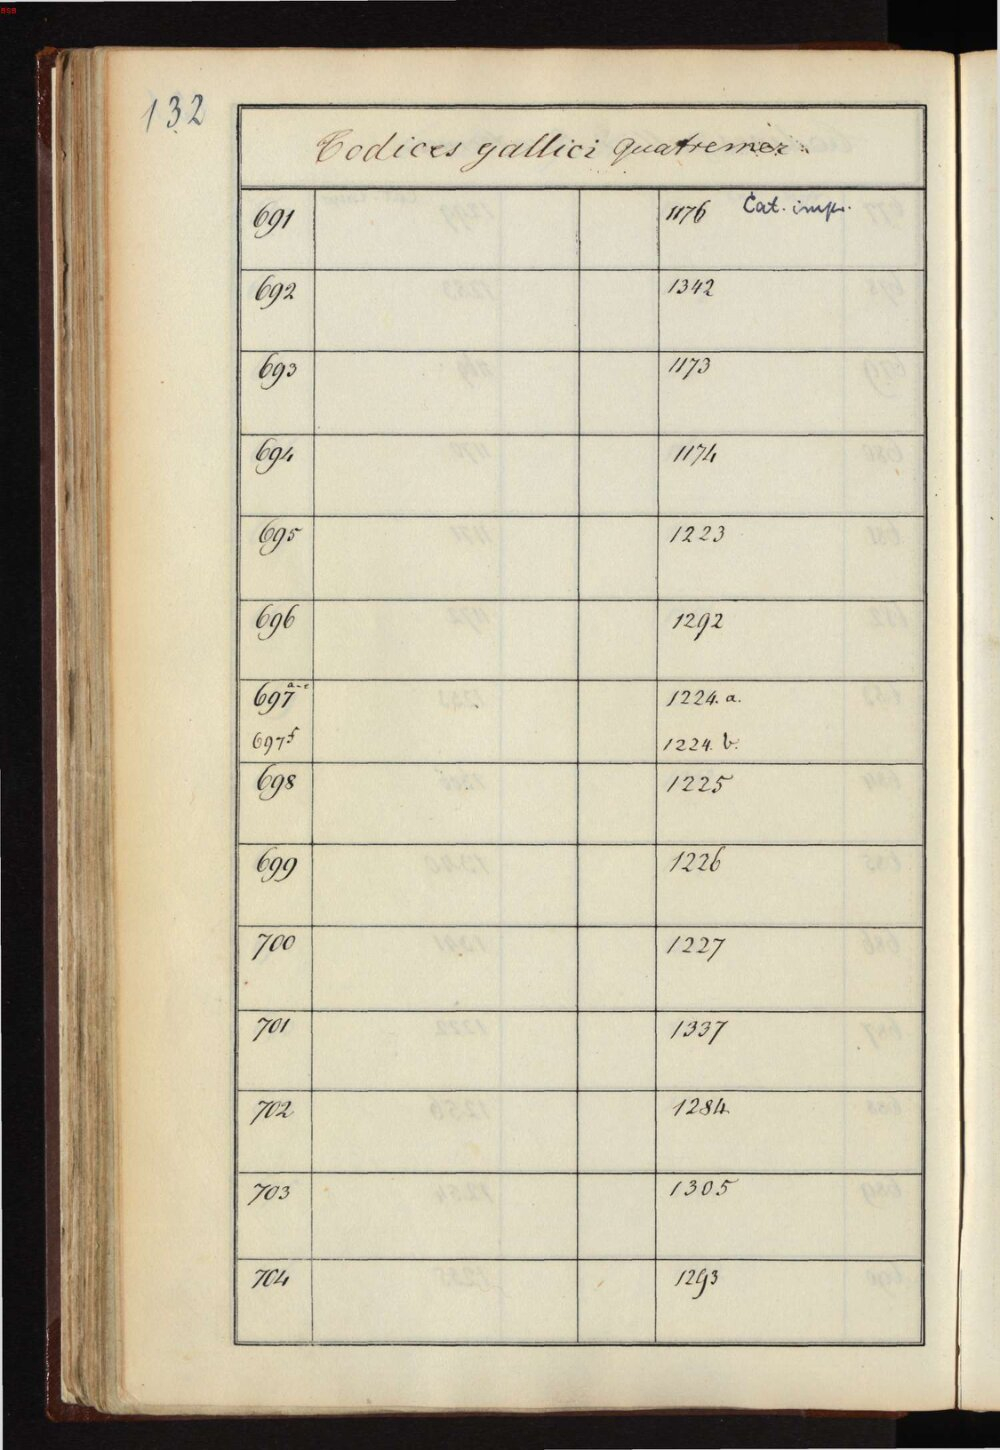 132
Codices gallici Quatremèr:
691 1176 Cat. impr.
692 1342
693 1173
694 1174
695 1223
696 1292
697 a-e 1224. a.
697 f 1224. b.
698 1225
699 1226
700 1227
701 1337
702 1284
703 1305
704 1293